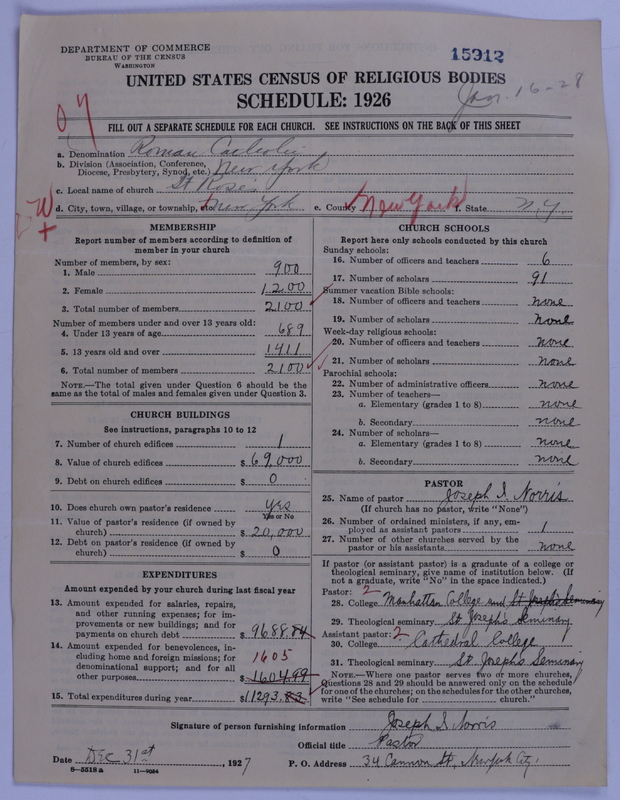 DEPARTMENT OF COMMERCE
BUREAU OF THE CENSUS
WASHINGTON
15912
UNITED STATES CENSUS OF RELIGIOUS BODIES
SCHEDULE: 1926
Jan. 16-28
FILL OUT A SEPARATE SCHEDULE FOR EACH CHURCH. SEE INSTRUCTIONS ON THE BACK OF THIS SHEET
a. Denomination Roman Catholic
b. Division (Association, Conference, Diocese, Presbytery, Synod, etc.) New York
c. Local name of church St Roses
d. City, town, village, or township, etc. New York e. County New York f. State N.Y.
MEMBERSHIP
Report number of members according to definition of member in your church
Number of members, by sex:
1. Male 900
2. Female 1200
3. Total number of members 2100
Number of members under and over 13 years old:
4. Under 13 years of age 689
5. 13 years old and over 1411
6. Total number of members 2100
NOTE.—The total given under Question 6 should be the same as the total of males and females given under Question 3.
CHURCH BUILDINGS
See instructions, paragraphs 10 to 12
7. Number of church edifices 1
8. Value of church edifices $ 69,000
9. Debt on church edifices $ 0
10. Does church own pastor's residence Yes
Yes or No
11. Value of pastor's residence (if owned by church) $ 20,000
12. Debt on pastor's residence (if owned by church) $ 0
EXPENDITURES
Amount expended by your church during last fiscal year
13. Amount expended for salaries, repairs, and other running expenses; for improvements or new buildings; and for payments on church debt $ 9688.84
14. Amount expended for benevolences, including home and foreign missions; for denominational support; and for all other purposes 1605 $ 1604.99
15. Total expenditures during year $ 11293.83
CHURCH SCHOOLS
Report here only schools conducted by this church
Sunday schools:
16. Number of officers and teachers 6
17. Number of scholars 91
Summer vacation Bible schools:
18. Number of officers and teachers none
19. Number of scholars none
Week-day religious schools:
20. Number of officers and teachers none
21. Number of scholars none
Parochial schools:
22. Number of administrative officers none
23. Number of teachers—
a. Elementary (grades 1 to 8) none
b. Secondary none
24. Number of scholars—
a. Elementary (grades 1 to 8) none
b. Secondary none
PASTOR
25. Name of pastor Joseph S. Norris
(If church has no pastor, write "None")
26. Number of ordained ministers, if any, employed as assistant pastors 1
27. Number of other churches served by the pastor or his assistants none
If pastor (or assistant pastor) is a graduate of a college or theological seminary, give name of institution below. (If not a graduate, write "No" in the space indicated.)
Pastor: 2
28. College Manhattan College and St Josephs Seminary
29. Theological seminary St Josephs Seminary
Assistant pastor: 2
30. College Cathedral College
31. Theological seminary St Josephs Seminary
NOTE.—Where one pastor serves two or more churches, Questions 28 and 29 should be answered only on the schedule for one of the churches; on the schedules for the other churches, write "See schedule for church."
Signature of person furnishing information Joseph S. Norris
Official title Pastor
Date Dec 31st, 1927 P. O. Address 34 Cannon St, New York City.
8—5518a 11—9064